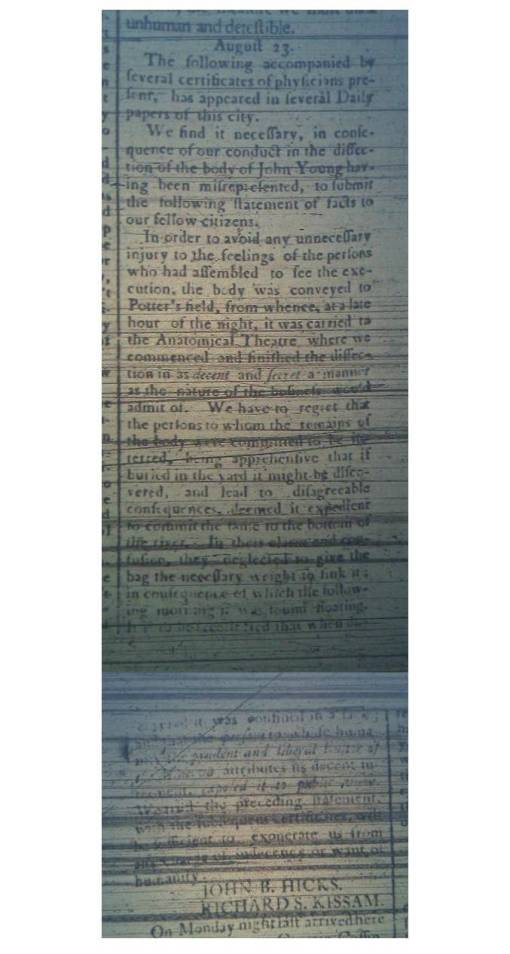 unhuman and detestible.
August 23.
The following accompanied by
several certificates of physicians pre-
sent, has appeared in several Daily
papers of this city.
We find it necessary, in conse-
quence of our conduct in the dissec-
tion of the body of John Young hav-
ing been misrepresented, to submit
the following statement of facts to
our fellow citizens.
In order to avoid any unnecessary
injury to the feelings of the persons
who had assembled to see the exe-
cution, the body was conveyed to
Potter's field, from whence, at a late
hour of the night, it was carried to
the Anatomical Theatre, where we
commenced and finished the dissec-
tion in as decent and secret a manner
as the nature of the business would
admit of. We have to regret that
the persons to whom the remains of
the body were committed to be in-
terred, being apprehensive that if
buried in the yard it might be disco-
vered, and lead to disagreeable
consequences, deemed it expedient
to commit the same to the bottom of
the river. In their and con-
fusion, they neglected to give the
bag the necessary weight to sink it;
in consequence of which the follow-
ing morning it was found floating.
that when
it was confined in a
the person to whose
prudent and liberal
attributes its decent in-
exposed it to public
the preceding statement,
with the subsequent certificates, will
be sufficient to exonerate us from
any charge of indecency or want of
humanity.
JOHN B. HICKS.
RICHARD S. KISSAM.
On Monday night last arrived here
Coffin